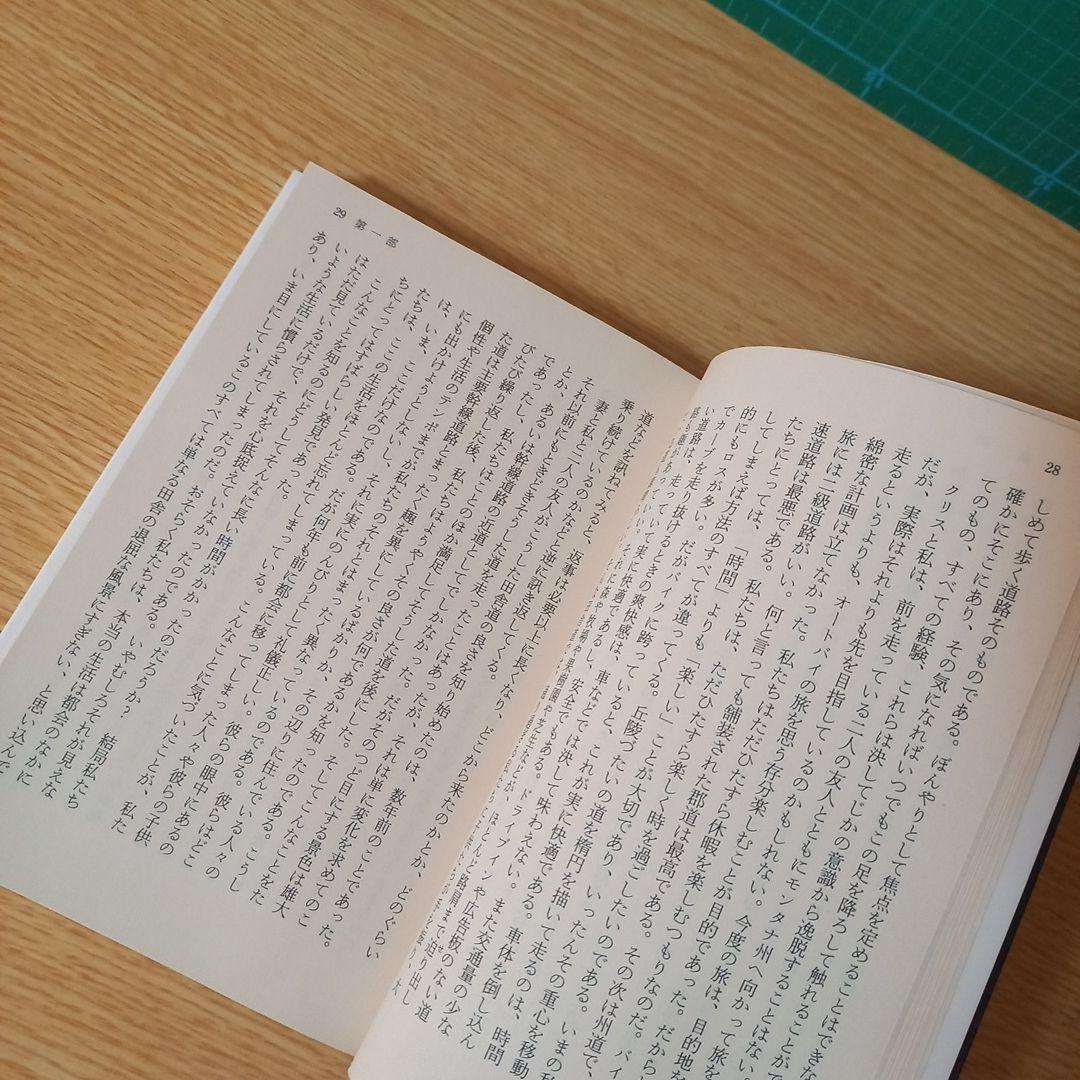 28
しめて歩く道路そのものである。ぼんやりとして焦点を定めることはできな
確かにそこにあり、その気になればいつでもこの足を降ろして触れることがで
てのもの、すべての経験、これらは決してじかの意識から逸脱することはない。
クリスと私は、前を走っている二人の友人とともにモンタナ州へ向かって旅を
だが、実際はそれよりも先を目指しているのかもしれない。今度の旅は、目的地を
走るというよりも、オートバイの旅を思う存分楽しむことが目的であった。だから
綿密な計画は立てなかった。私たちはただひたすら休暇を楽しむつもりなのだ。バイ
旅には二級道路がいい。何と言っても舗装された郡道は最高である。その次は州道で、
速道路は最悪である。私たちは、ただひたすら楽しく時を過ごしたいのである。いまの私
たちにとっては、「時間」よりも「楽しい」ことが大切であり、いったんその重心を移動
してしまえば方法のすべてが違ってくる。丘陵づたいの道を楕円を描いて走るのは、時間
的にもロスが多い。だがバイクに跨っていると、これが実に快適である。車体を倒し込ん
でカーブを走り抜けるときの爽快感は、車などでは決して味わえない。また交通量の少な
い道路は走っていて実に快適であるし、安全でもある。ドライブインや広告板のない道
路も趣があっていい。それに森や牧場や果樹園や芝生などが、ほとんど路肩まで迫り出し
29 第一部
道などを訊ねてみると、返事は必要以上に長くなり、どこから来たのかとか、どのぐらい
乗り続けているのかなどと逆に訊き返してくる。
妻と私と二人の友人がこうした田舎道の良さを知り始めたのは、数年前のことであった。
それ以前にもときどきそうした道を走ったことはあったが、それは単に変化を求めてのこ
とか、あるいは幹線道路の近道としてでしかなかった。だがそのつど目にする景色は雄大
であったし、私たちはことのほか満足してそうした道を後にした。そしてこんなことをた
びたび繰り返した後、私たちはようやくその良さが何であるかを知ったのである。こうし
た道は主要幹線道路とまったく趣を異にしているばかりか、その辺りに住んでいる人々の
個性や生活のテンポまでが私たちのそれとはまったく異なっているのである。彼らはどこ
にも出かけようとしないし、それに実にのんびりとして礼儀正しい。彼らの眼中にあるの
は、いま、ここだけなのである。だが何年も前に都会に移ってしまった人々や彼らの子供
たちは、ここの生活をほとんど忘れてしまっている。こんなことに気づいたことが、私た
ちにとってはすばらしい発見であった。
こんなことを知るのにどうしてそんなに長い時間がかかったのだろうか？ 結局私たち
はただ見ているだけで、それを心底捉えていなかったのである。いやむしろそれが見えな
いような生活に慣らされてしまったのだ。おそらく私たちは、本当の生活は都会のなかに
あり、いま目にしているこのすべては単なる田舎の退屈な風景にすぎない、と思い込んで